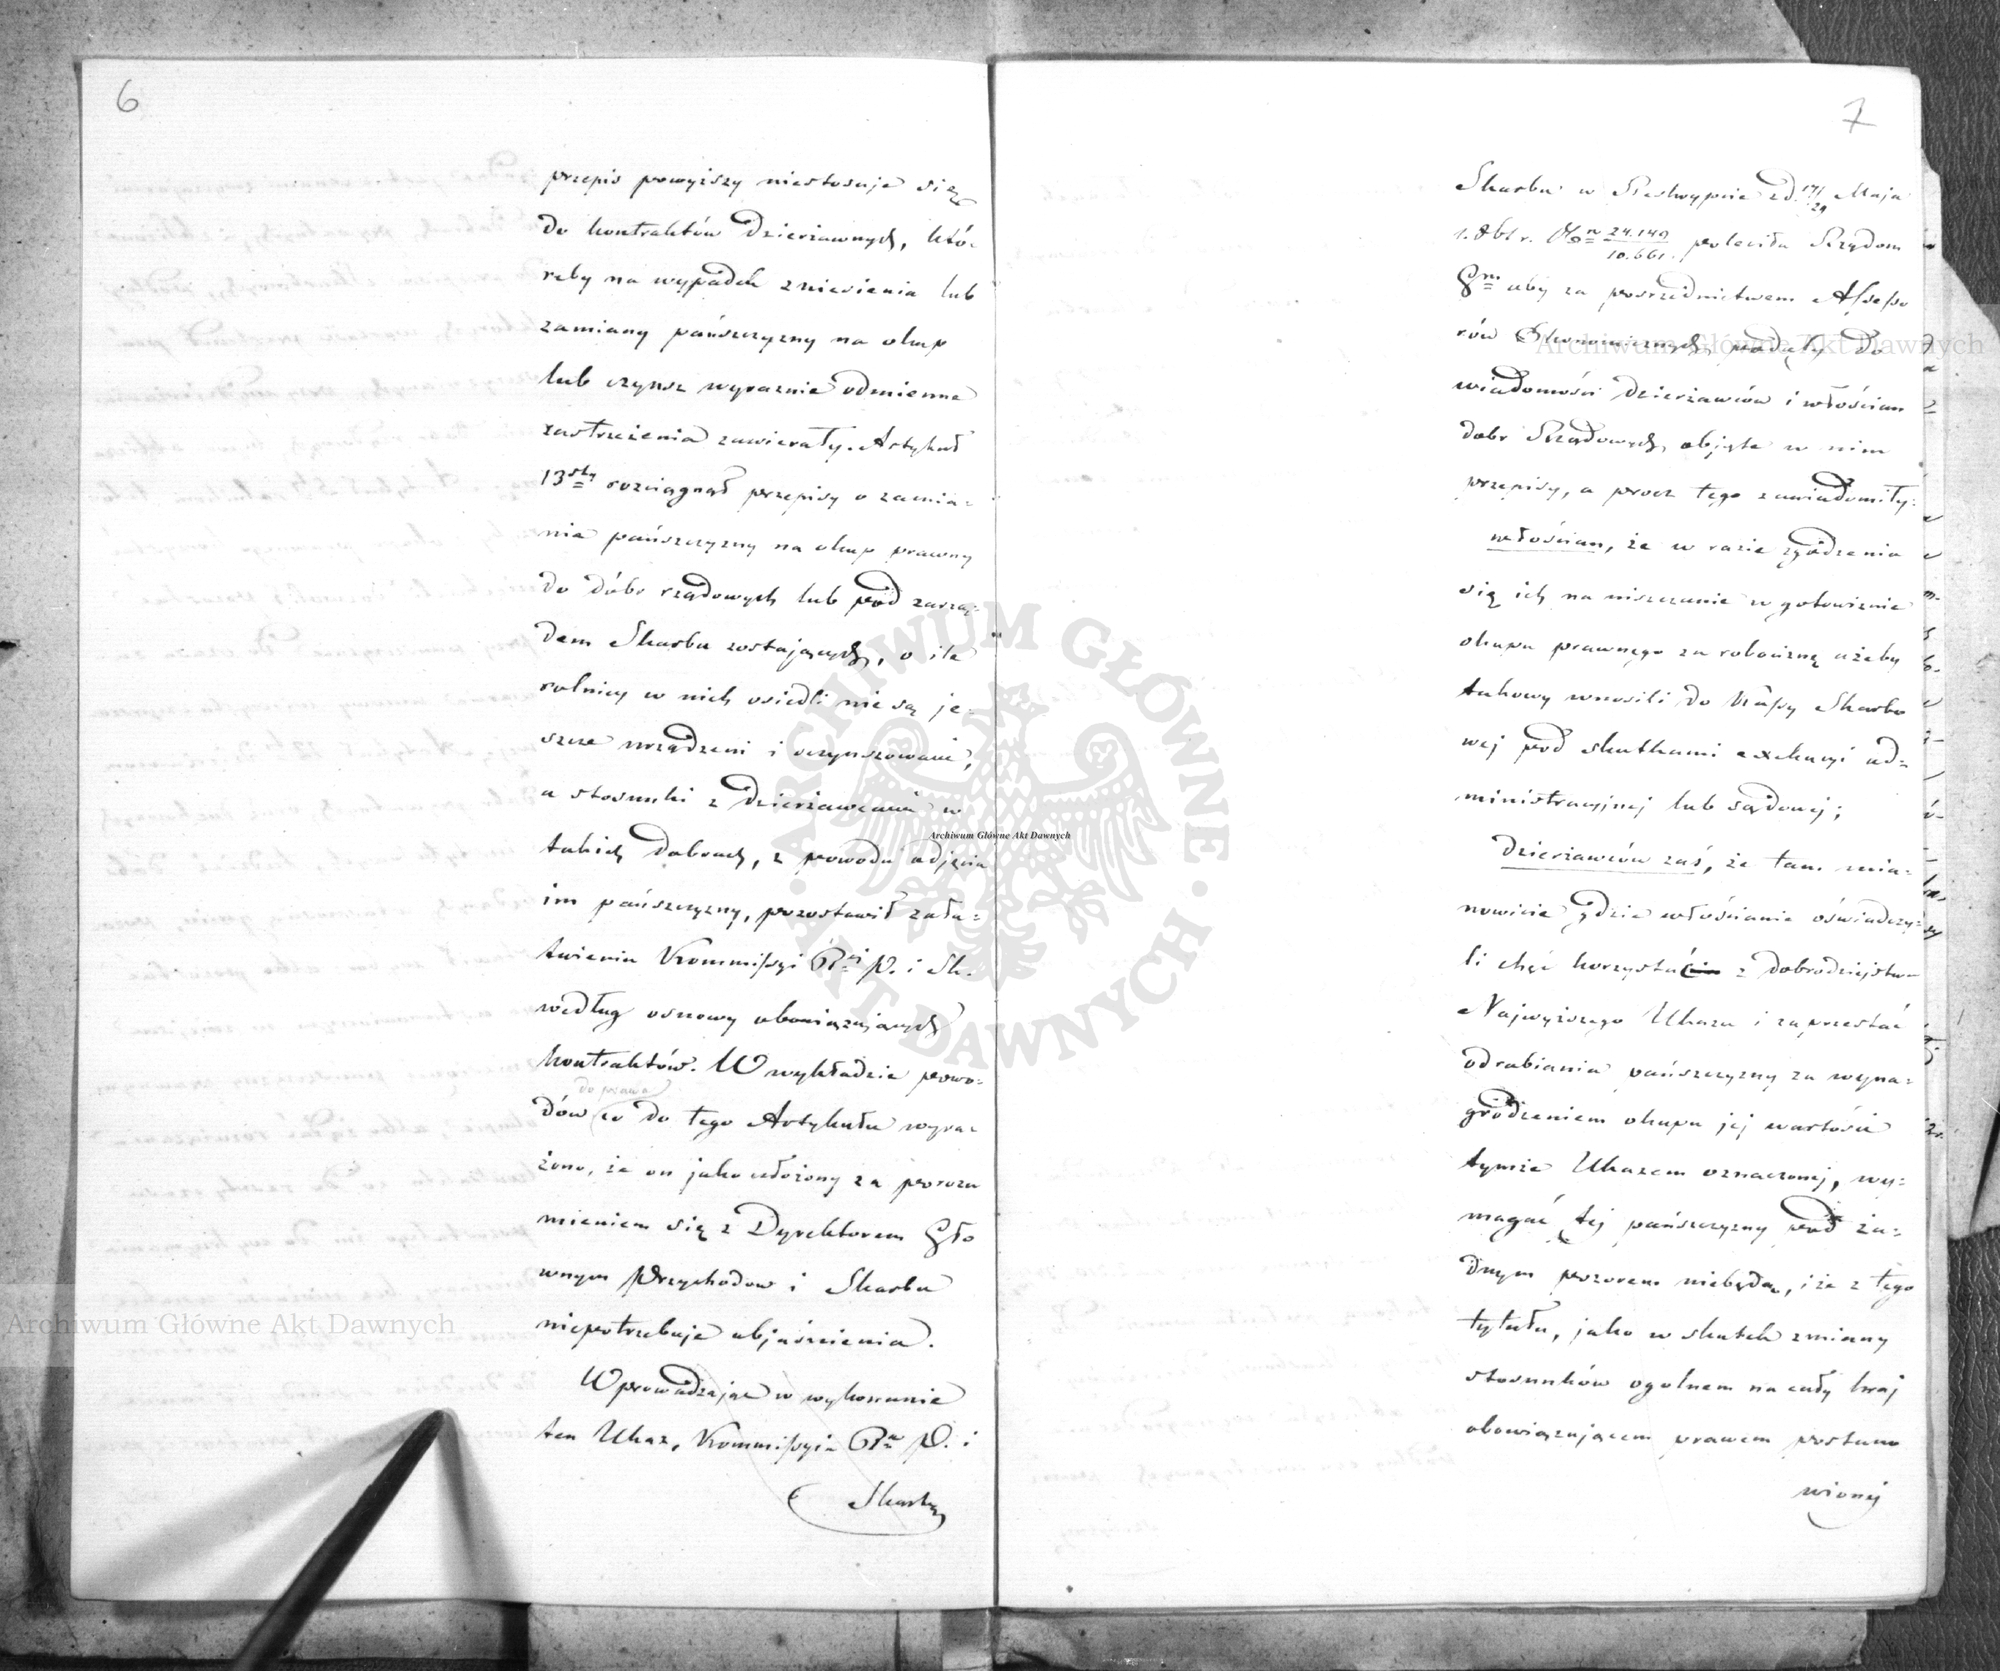 6
przepis powyższy niestosuje się
do kontraktów dzierżawnych, któ-
reby na wypadek zniesienia lub
zamiany pańszczyzny na okup
lub czynsz wyraźnie odmienne
zastrzeżenia zawierały. Artykuł
13sty rozciągnął przepisy o zamia-
nie pańszczyzny na okup prawny
do dóbr rządowych lub pod zarzą-
dem Skarbu zostających, o ile
rolnicy w nich osiedli nie są je-
szcze urządzeni i oczynszowani,
a stosunki z dzierżawcami w
takich dobrach, z powodu odjęcia
im pańszczyzny, pozostawił zała-
twieniu Kommissyi Rei P. i Sk.
według osnowy obowiązujących
kontraktów. W wykładzie powo-
do prawa
dów co do tego Artykułu wyra-
żono, że on jako ułożony za porozu
mieniem się z Dyrektorem Głó
wnym Przychodow i Skarbu
niepotrzebuje objaśnienia.
Wprowadzając w wykonanie
ten Ukaz, Kommissyia Ra P. i
Skarbu
7
Skarbu w Reskrypcie z d. 17/29 Maja
1.861 r. No 24.149/10.661. poleciła Rządom
Gm aby za pośrednictwem Assesso
rów Ekonomicznych podały do
wiadomości dzierżawców i włościan
dobr Rządowych objęte w nim
przepisy, a procz tego zawiadomiły:
włościan, że w razie zgodzenia
się ich na uiszczanie w gotowiznie
okupu prawnego za robociznę ażeby
takowy wnosili do Kassy Skarbo
wej pod skutkami exekucyi ad-
ministracyjnej lub sądowej;
dzierżawców zaś, że tam mia-
nowicie gdzie włościanie oświadczy-
li chęć korzystać z dobrodziejstw
Najwyższego Ukazu i zaprzestać
odrabiania pańszczyzny za wyna-
grodzeniem okupu jej wartości
tymże Ukazem oznaczonej, wy-
magać tej pańszczyzny pod ża-
dnym pozorem niebędą, i że z tego
tytułu, jako w skutek zmiany
stosunków ogolnem na cały kraj
obowiązującem prawem postano
wionej
Archiwum Główne Akt Dawnych
Archiwum Główne Akt Dawnych
Archiwum Główne Akt Dawnych
ARCHIWUM GŁÓWNE
AKT DAWNYCH